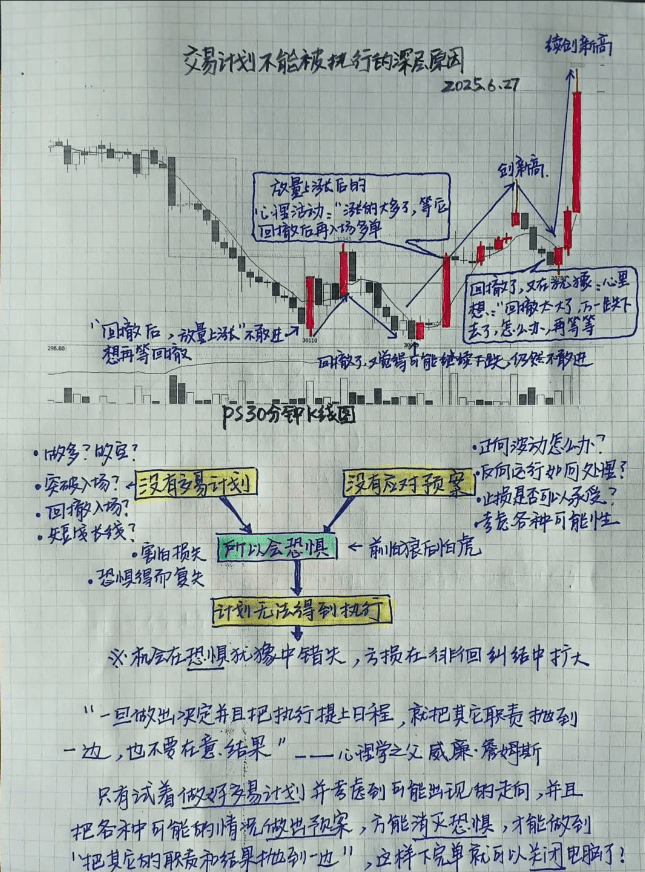 交易计划不能被执行的深层原因
2025.6.27
续创新高
创新高
放量上涨后的
心理活动:"涨的太多了,等后
回撤后再入场多单
回撤了,又在犹豫:心里
想:"回撤太大了,万一跌下
去了,怎么办,再等等
"回撤后,放量上涨"不敢进
想再等回撤
30110
回撤了,又觉得可能继续下跌,仍然不敢进
298.60
PS30分钟K线图
·做多?做空?
·突破入场?
·回撤入场?
·短线长线?
没有交易计划
没有应对预案
·正向波动怎么办?
·反向运行如何处理?
·止损是否可以承受?
·考虑各种可能性
·害怕损失
·恐惧得而复失
所以会恐惧
← 前怕狼后怕虎
计划无法得到执行
※机会在恐惧犹豫中错失,亏损在徘徊纠结中扩大
"一旦做出决定并且把执行提上日程,就把其它职责抛到
一边,也不要在意结果"——心理学之父 威廉·詹姆斯
只有试着做好交易计划并考虑到可能出现的走向,并且
把各种可能的情况做出预案,方能消灭恐惧,才能做到
"把其它的职责和结果抛到一边",这样下完单就可以关闭电脑了!